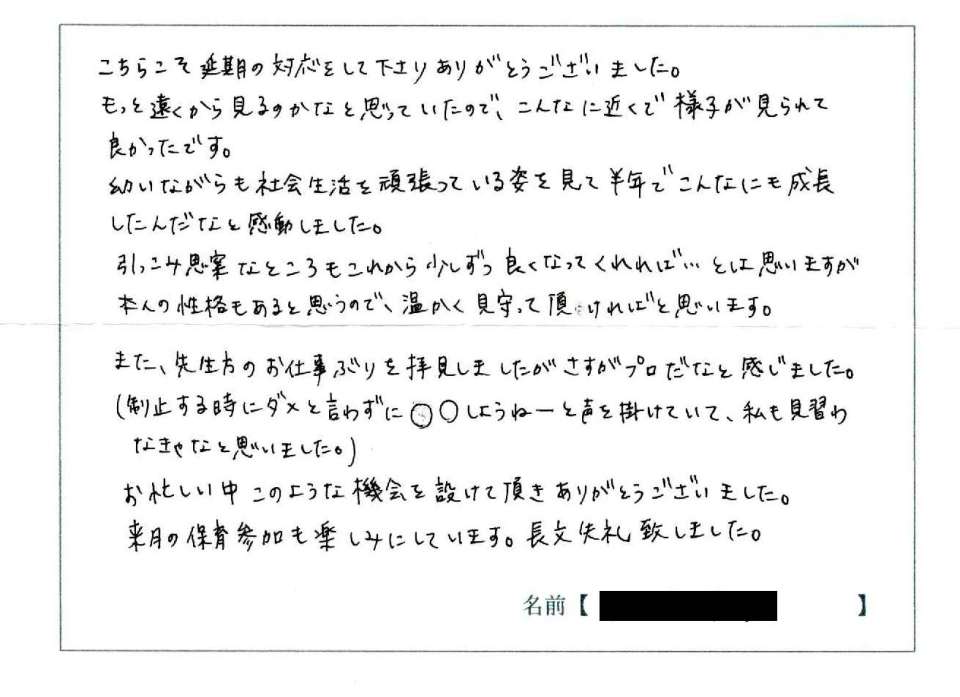 こちらこそ延期の対応をして下さりありがとうございました。
もっと遠くから見るのかなと思っていたので、こんなに近くで様子が見られて
良かったです。
幼いながらも社会生活を頑張っている姿を見て半年でこんなにも成長
したんだなと感動しました。
引っこみ思案なところもこれから少しずつ良くなってくれれば…とは思いますが
本人の性格もあると思うので、温かく見守って頂ければと思います。
また、先生方のお仕事ぶりを拝見しましたがさすがプロだなと感じました。
(制止する時にダメと言わずに○○しようねーと声を掛けていて、私も見習わ
なきゃなと思いました。)
お忙しい中このような機会を設けて頂きありがとうございました。
来月の保育参加も楽しみにしています。長文失礼致しました。
名前【 】